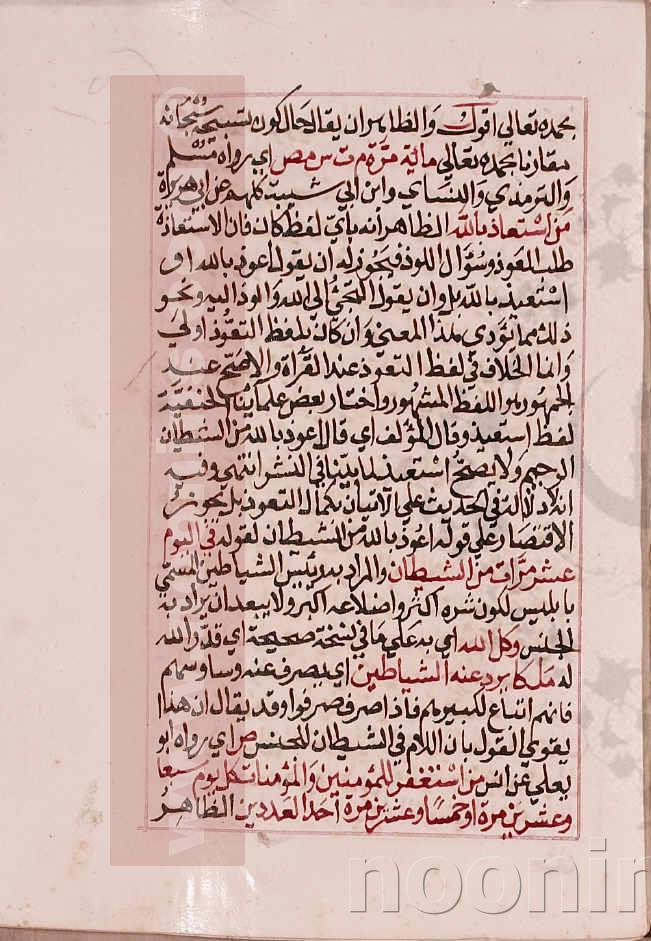 بحمده تعالى اقول والظاهر ان يقال حال كون تسبيحه سبحانه
مقارنا بحمده تعالى مائة مرة م ت س مص اي رواه مسلم
والترمذي والنسايي وابن ابي شيبة كلهم عن ابي هريرة
من استعاذ بالله الظاهر انه بايّ لفظ كان فان الاستعاذة
طلب العوذ وسؤال اللوذ فيجوز له ان يقول اعوذ بالله او
استعيذ بالله بل وان يقول التجئ الى الله والوذ اليه ونحو
ذلك مما يؤدي هذا المعنى وان كان بلفظ التعوذ اولى
وانما الخلاف في لفظ التعوذ عند القرأة والاصحّ عند
الجمهور هو اللفظ المشهور واختار بعض علمائنا الحنفية
لفظ استعيذ وقال المؤلف اي قال اعوذ بالله من الشيطان
الرجيم ولا يصحّ استعيذ لما بيّنا في النشر انتهى وفيه
انه لا دلالة في الحديث على الاتيان بكمال التعوذ بل يجوز
الاقتصار على قوله اعوذ بالله من الشيطان لقوله في اليوم
عشر مرّات من الشيطان والمراد به رئيس الشياطين المسمى
بابليس لكون شره اكثر واضلاله اكبر ولا يبعد ان يراد به
الجنس وكل الله اي به على ما في نسخة صحيحة اي قدّر الله
له ملكا يرد عنه الشياطين اي يصرف عنه وساوسهم
فانهم اتباع لكبيرهم فاذا صرف صرفوا وقد يقال ان هذا
يقوي القول بان اللام في الشيطان للجنس ص اي رواه ابو
يعلى عن انس من استغفر للمؤمنين والمؤمنات كل يوم سبعا
وعشرين مرة او خمسا وعشرين مرة احد العددين الظاهر
noonin